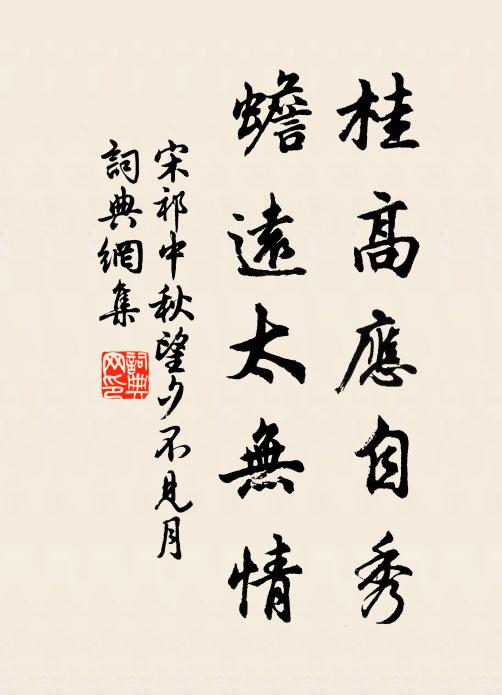 桂高應自秀
蟾遠太無情
宋祁中秋望夕不見月
詞典網集
詞典网印